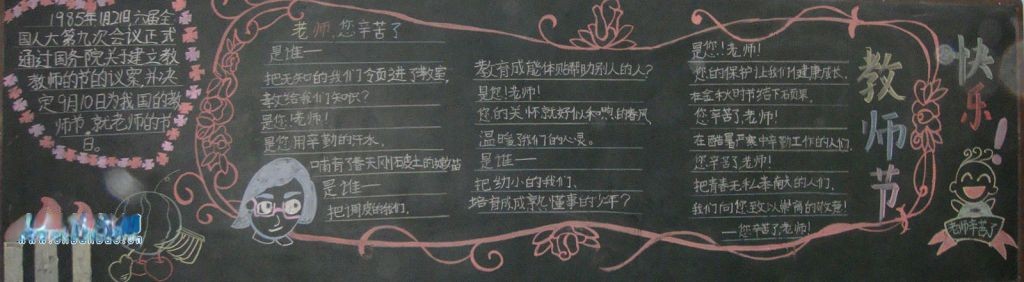 1985年1月21日六届全
国人大第九次会议正式
通过国务院关于建立教
教师的节的议案,并决
定9月10日为我国的教
师节,就老师的节
日。
老师,您辛苦了
是谁——
把无知的我们领进了教室,
教给我们知识?
是您!老师!
是您用辛勤的汗水,
哺育了春天刚破土的嫩苗
是谁——
把调皮的我们,
教育成能体贴帮助别人的人?
是您!老师!
您的关怀就好似和煦的春风,
温暖了我们的心灵。
是谁——
把幼小的我们,
培育成成熟懂事的少年?
是您!老师!
您的保护让我们健康成长,
在金秋时节结下硕果。
您辛苦了,老师!
在酷暑严寒中辛勤工作的人们,
您辛苦了,老师!
把青春无私奉献的人们,
我们向您致以崇高的敬意!
——您辛苦了,老师!
教师节
快乐!
老师辛苦了